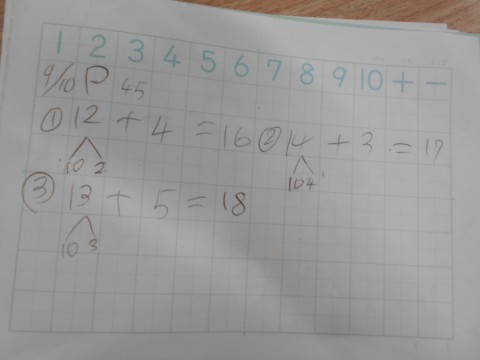 1 2 3 4 5 6 7 8 9 10 + -
9/10 P 45
① 12 + 4 = 16 ② 14 + 3 = 17
10 2 10 4
③ 13 + 5 = 18
10 3